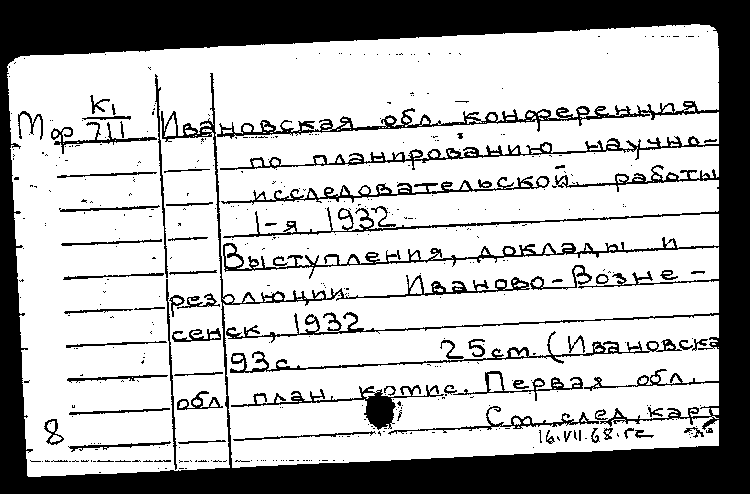 Мф К1/711 Ивановская обл. конференция
по планированию научно-
исследовательской работы
1-я. 1932.
Выступления, доклады и
резолюции. Иваново-Возне-
сенск, 1932.
93с. 25см. (Ивановска
обл. план. комис. Первая обл.
См. след. карт
8
16.VII.68.